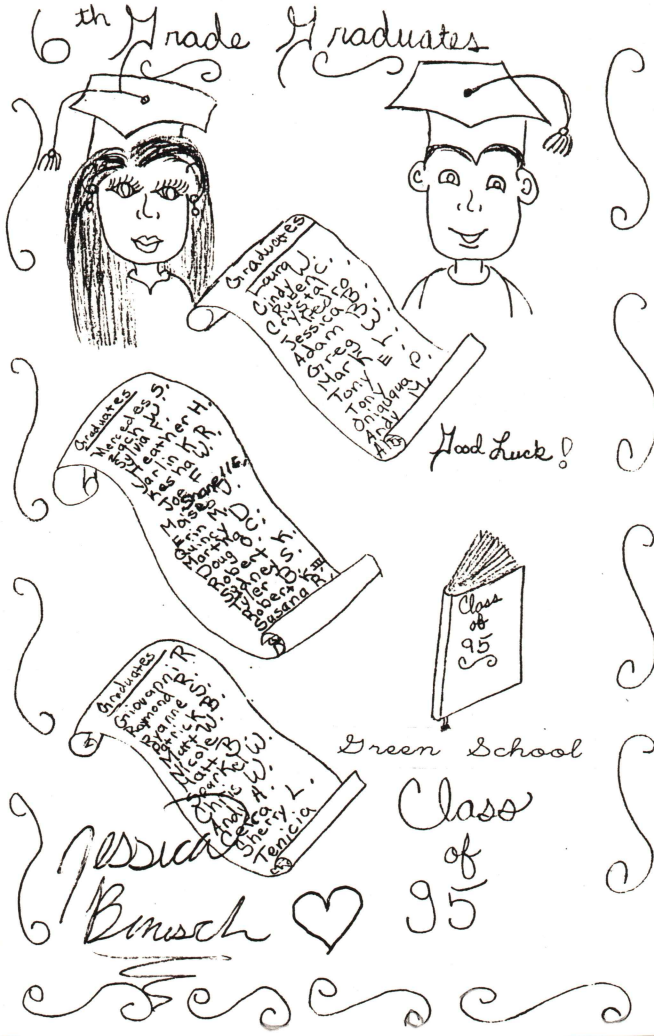 6th Grade Graduates
Graduates
Laura W.
Cindy C.
Ruben
Crystal
Jessica
Adam
Greg
Mark L.
Tony E.
Tony
Oniququa P.
Andy M.
Good Luck!
Graduates
Mercedes S.
W.
Sylvia F.
Heather H.
Marlin K.
Kesha W.
Joe F.
Shanelle
Moises
Erin M.
Quincy
Martha D.
Doug C.
Robert
Sydney K.
Tyler S.
Robert
Susana R.
Class
of
95
Graduates
Giovann. R
Raymond
Ryanne
Patrick
Matt W.
Nicole
Matt B.
Sparkel W.
Chric W.
Andy
A.
Sherry L.
Tenicia
Green School
Class
of
95
Jessica